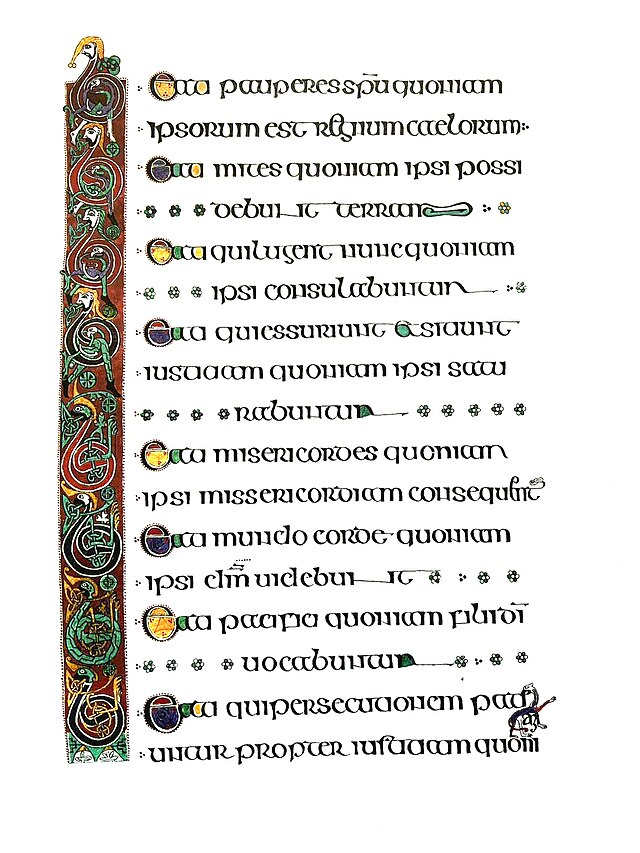 Beati pauperes sp̄u quoniam
ipsorum est regnum caelorum
Beati mites quoniam ipsi possi
debunt terram
Beati qui lugent nunc quoniam
ipsi consulabuntur
Beati qui essuriunt & sitiunt
iustitiam quoniam ipsi satu
rabuntur
Beati misericordes quoniam
ipsi missericordiam
Beati mundo corde quoniam
ipsi dm̄ uidebunt
Beati pacifici quoniam filii dī
uocabuntur
Beati qui persecutionem pati
untur propter iustitiam quoni